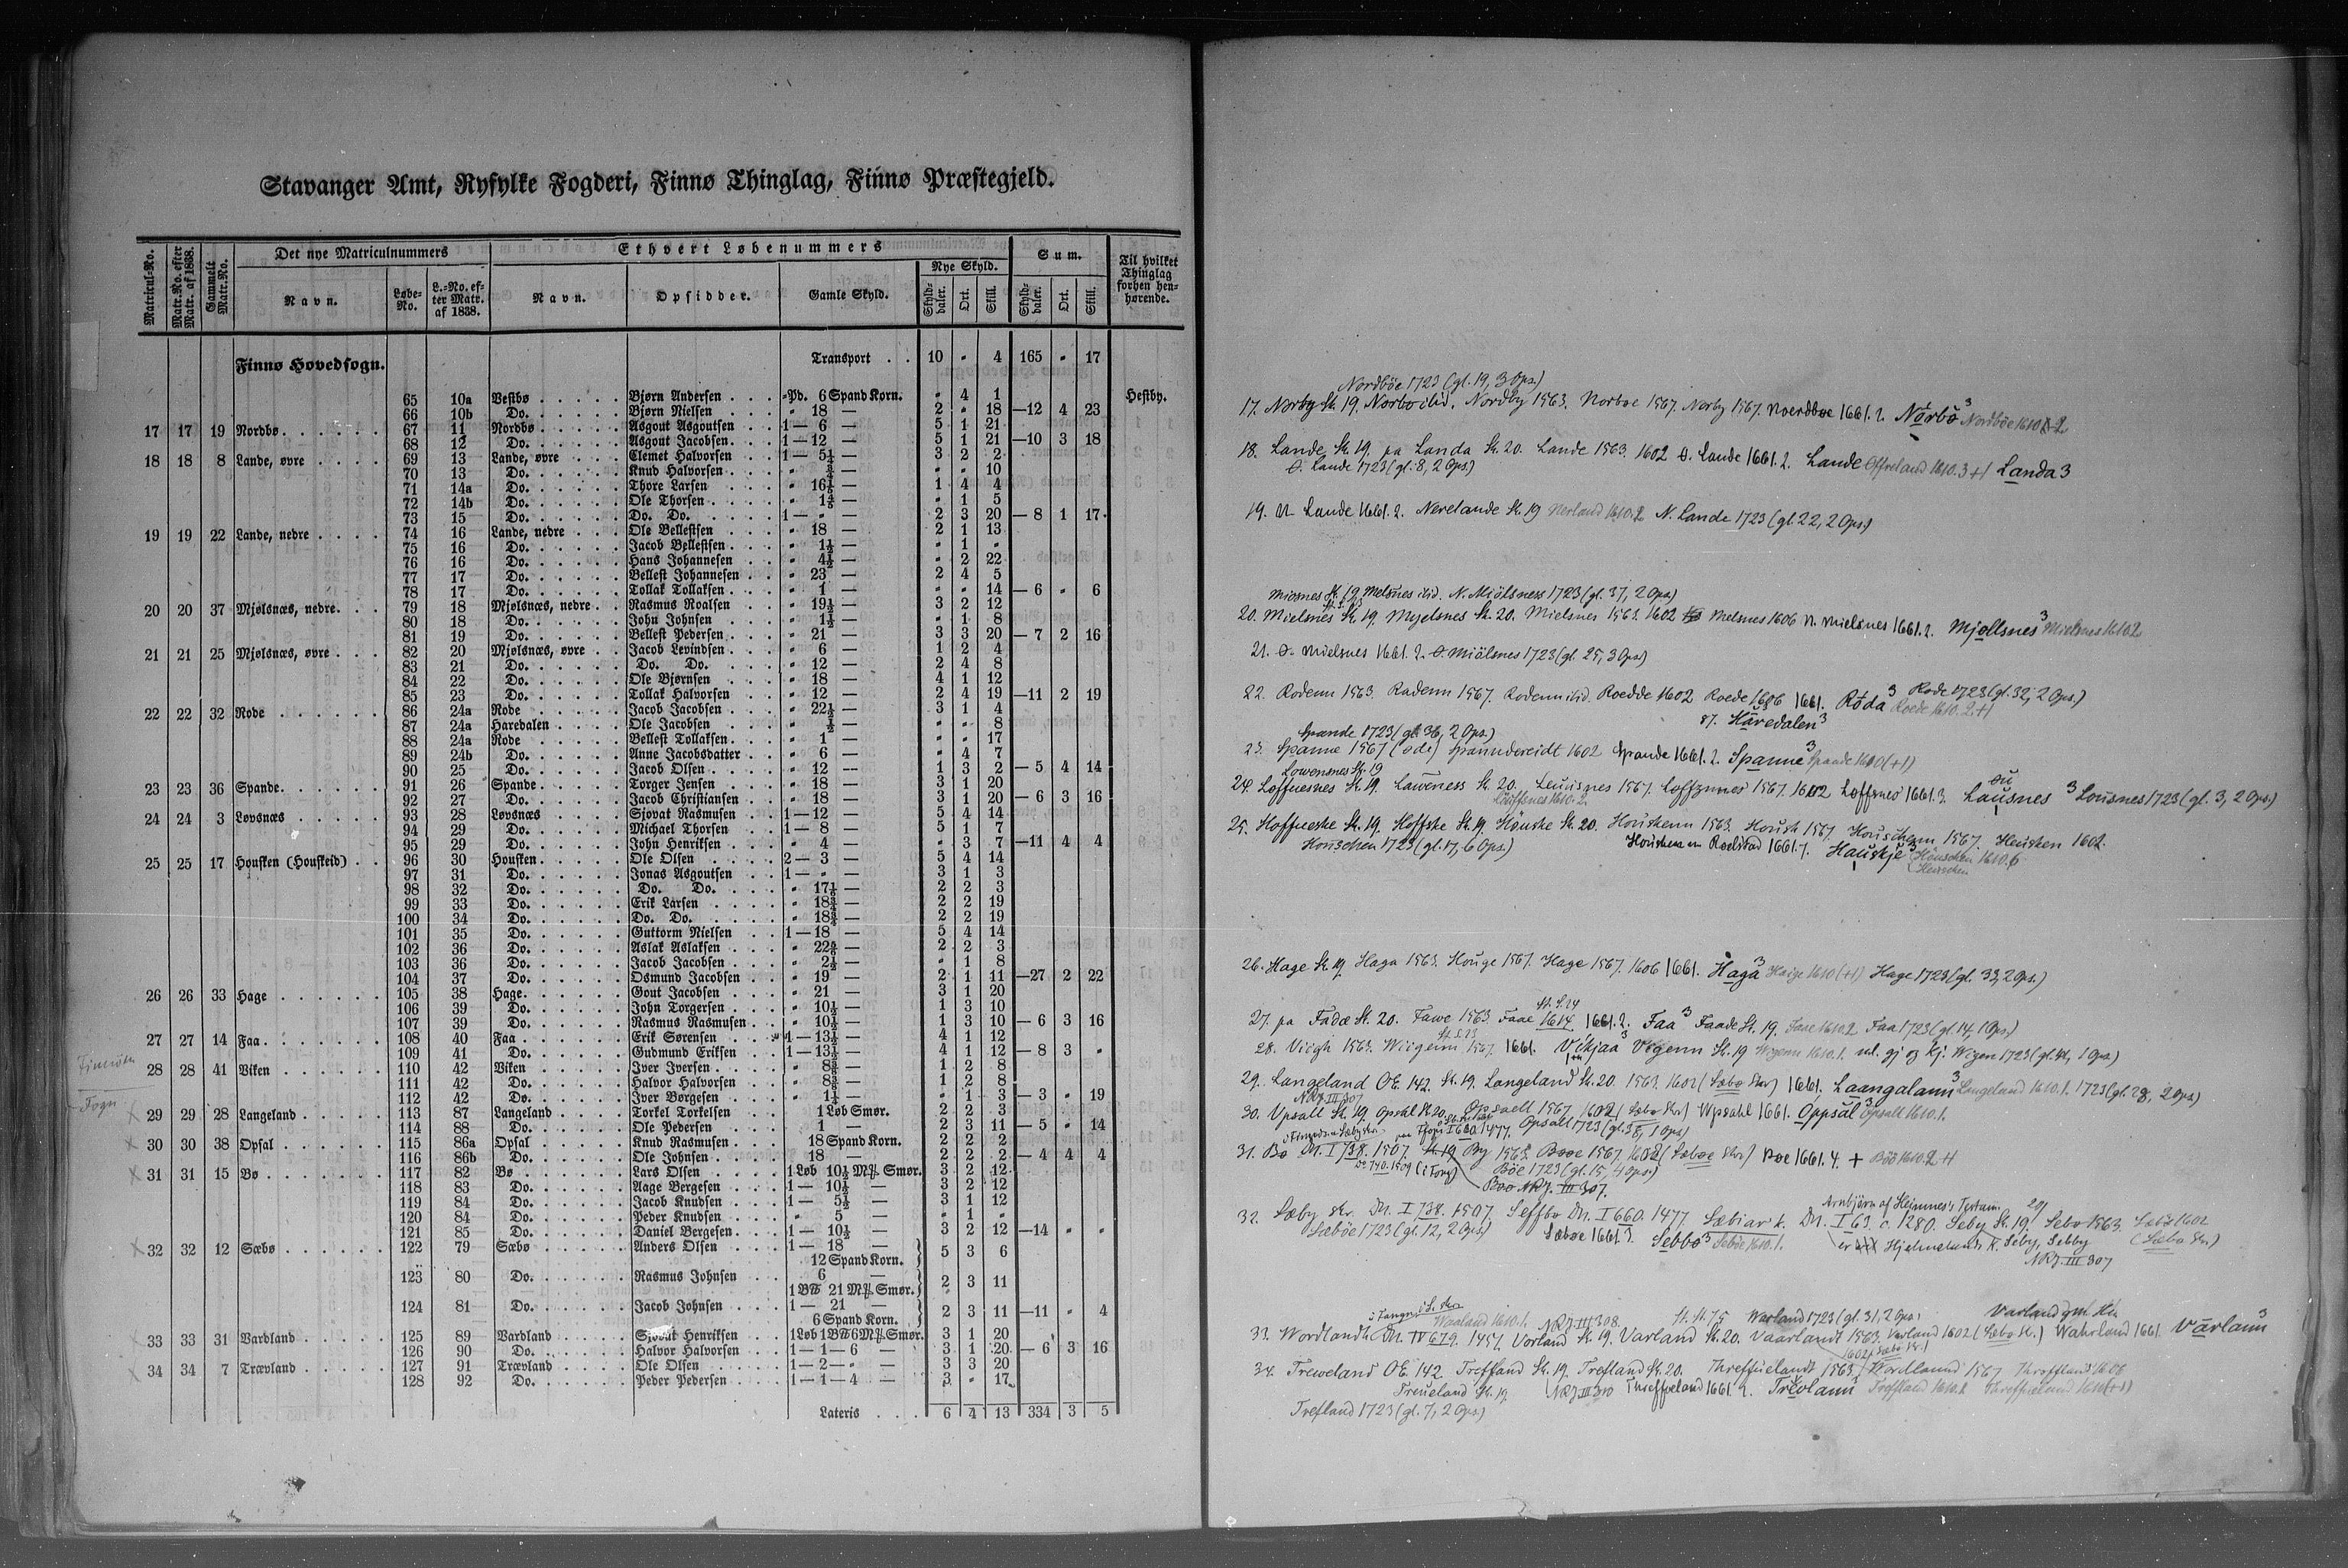 Stavanger Amt, Ryfylke Fogderi, Finnø Thinglag, Finnø Præstegjeld.
Matricul-No. Matr.No. efter Matr. af 1838. Gammelt Matr.No. Det nye Matriculnummers Ethvert Løbenummers Sum. Til hvilket Thinglag forhen henhørende.
Navn. Løbe-No. L.-No. efter Matr. af 1838. Navn. Opsidder. Gamle Skyld. Nye Skyld. Skylddaler. Ort. Skill. Skylddaler. Ort. Skill.
Finnø Hovedsogn. Transport . . 10 " 4 165 " 17
65 10a Vestbø . . . . . Bjørn Andersen . . . "Pd. 6 Spand Korn. " 4 1 Hestby.
66 10b Do. . . . . . Bjørn Nielsen . . . " 18 — 2 " 18 —12 4 23
17 17 19 Nordbø. . . . . . 67 11 Nordbø . . . . . Asgout Asgoutsen . . 1— 6 — 5 1 21
68 12 Do. . . . . . Asgout Jacobsen. . . 1—12 — 5 1 21 —10 3 18
18 18 8 Lande, øvre . . . . 69 13 Lande, øvre . . . Clemet Halvorsen . . 1— 5½ — 3 2 2
70 13 Do. . . . . . Knud Halvorsen. . . " ¾ — " " 10
71 14a Do. . . . . . Thore Larsen . . . " 16⅕ — 1 4 4
72 14b Do. . . . . . Ole Thorsen . . . . " 1⅘ — " 1 5
73 15 Do. . . . . . Do. Do. . . . . 1— " — 2 3 20 — 8 1 17
19 19 22 Lande, nedre . . . . 74 16 Lande, nedre . . . Ole Bellestsen . . . " 18 — 2 1 13
75 16 Do. . . . . . Jacob Bellestsen . . . " 1½ — " 1 "
76 16 Do. . . . . . Hans Johannesen . . " 4½ — " 2 22
77 17 Do. . . . . . Bellest Johannesen . . " 23 — 2 4 5
78 17 Do. . . . . . Tollak Tollaksen . . . " 1 — " " 14 — 6 " 6
20 20 37 Mjølsnæs, nedre. . . 79 18 Mjølsnæs, nedre . . Rasmus Roalsen . . " 19½ — 3 2 12
80 18 Do. . . . . . John Johnsen . . . " 1½ — " 1 8
81 19 Do. . . . . . Bellest Pedersen . . . " 21 — 3 3 20 — 7 2 16
21 21 25 Mjølsnæs, øvre . . . 82 20 Mjølsnæs, øvre . . Jacob Levindsen . . . " 6 — 1 2 4
83 21 Do. . . . . . Do. Do. . . . " 12 — 2 4 8
84 22 Do. . . . . . Ole Bjørnsen . . . " 18 — 4 1 12
85 23 Do. . . . . . Tollak Halvorsen . . " 12 — 2 4 19 —11 2 19
22 22 32 Rode . . . . . . 86 24a Rode . . . . . Jacob Jacobsen . . . " 22½ — 3 1 4
87 24a Haredalen . . . . Ole Jacobsen . . . " ½ — " " 8
88 24a Rode . . . . . Bellest Tollaksen . . . " 1 — " " 17
89 24b Do. . . . . . Anne Jacobsdatter . . " 6 — " 4 7
90 25 Do. . . . . . Jacob Olsen . . . . " 12 — 1 3 2 — 5 4 14
23 23 36 Spande. . . . . . 91 26 Spande. . . . . Torger Jensen . . . " 18 — 3 1 20
92 27 Do. . . . . . Jacob Christiansen . . " 18 — 3 1 20 — 6 3 16
24 24 3 Løvsnæs . . . . . 93 28 Løvsnæs . . . . Sjovat Rasmusen . . 1—12 — 5 4 14
94 29 Do. . . . . . Michael Thorsen . . 1— 8 — 5 1 7
95 29 Do. . . . . . John Henriksen . . . " 4 — " 3 7 —11 4 4
25 25 17 Housken (Houskeid) . . 96 30 Housken. . . . . Ole Olsen . . . . 2— 3 — 5 4 14
97 31 Do. . . . . . Jonas Asgoutsen . . 1— " — 3 1 3
98 32 Do. . . . . . Do. Do. . . . " 17⅛ — 2 2 3
99 33 Do. . . . . . Erik Larsen . . . . " 18¾ — 2 2 19
100 34 Do. . . . . . Do. Do. . . . . " 18¾ — 2 2 19
101 35 Do. . . . . . Guttorm Nielsen . . 1—18 — 5 4 14
102 36 Do. . . . . . Aslak Aslaksen . . . " 22⅜ — 2 2 3
103 36 Do. . . . . . Jacob Jacobsen . . . " 2½ — " 1 8
104 37 Do. . . . . . Osmund Jacobsen . . " 19 — 2 1 11 —27 2 22
26 26 33 Hage . . . . . . 105 38 Hage. . . . . . Gout Jacobsen . . . " 21 — 3 1 20
106 39 Do. . . . . . John Torgersen . . . " 10½ — 1 3 10
107 39 Do. . . . . . Rasmus Rasmusen . . " 10½ — 1 3 10 — 6 3 16
27 27 14 Faa. . . . . . . 108 40 Faa . . . . . . Erik Sørensen . . . 1—13½ — 4 1 12
109 41 Do. . . . . . Gudmund Eriksen . . 1—13½ — 4 1 12 — 8 3 "
28 28 41 Viken . . . . . . 110 42 Viken . . . . . Iver Iversen . . . . " 8⅜ — 1 2 8
111 42 Do. . . . . . Halvor Halvorsen . . " 8⅜ — 1 2 8
112 42 Do. . . . . . Iver Børgesen . . . " 1¼ — " 1 3 — 3 " 19
Fogn
29 29 28 Langeland . . . . . 113 87 Langeland . . . . Torkel Torkelsen . . 1 Løb Smør. 2 2 3
114 88 Do. . . . . . Ole Pedersen . . . 1 — 2 3 11 — 5 " 14
30 30 38 Opsal . . . . . . 115 86a Opsal . . . . . Knud Rasmusen . . . 18 Spand Korn. 2 2 2
116 86b Do. . . . . . Ole Johnsen . . . . 18 — 2 2 2 — 4 4 4
31 31 15 Bø . . . . . . . 117 82 Bø . . . . . . Lars Olsen . . . . 1 Løb 10½ Mk Smør. 3 2 12
118 83 Do. . . . . . Aage Bergesen . . . 1— 10½ — 3 2 12
119 84 Do. . . . . . Jacob Knudsen . . . 1— 5½ — 3 1 12
120 84 Do. . . . . . Peder Knudsen . . . " 5 — " 1 "
121 85 Do. . . . . . Daniel Bergesen . . . 1— 10½ — 3 2 12 —14 " "
32 32 12 Sæbø . . . . . . 122 79 Sæbø . . . . . Anders Olsen . . . 1— 18 — 5 3 6
12 Spand Korn.
123 80 Do. . . . . . Rasmus Johnsen . . 6 — 2 3 11
1 B℔ 21 Mk Smør.
124 81 Do. . . . . . Jacob Johnsen . . . 1— 21 — 2 3 11 —11 " 4
6 Spand Korn.
33 33 31 Vardland . . . . . 125 89 Vardland . . . . Sjovat Henriksen . . 1 Løb 1 B℔ 6 Mk Smør. 3 1 20
126 90 Do. . . . . . Halvor Halvorsen . . 1—1—6 — 3 1 20 — 6 3 16
34 34 7 Trævland . . . . . 127 91 Trævland . . . . Ole Olsen . . . . 1—2—" — 3 3 20
128 92 Do. . . . . . Peder Pedersen . . . 1—1—4 — 3 " 17
Lateris . . . 6 4 13 334 3 5
Nordböe 1723 (gl. 19, 3 Ops.)
17. Norby St. 19. Norbo ibid. Nordby 1563. Norboe 1567. Norby 1567. Noerdboe 1661. 2. Nørbø 3 Nordböe 1610
18. Lande St. 19. pa Landa St. 20. Lande 1563. 1602 O. Lande 1661. 2. Lande Offreland 1610. 3+1 Landa 3
O. Lande 1723 (gl. 8, 2 Ops.)
19. N. Lande 1661. 2. Nerelande St. 19 Nerland 1610. 2 N. Lande 1723 (gl. 22, 2 Ops.)
Miosnes St. 19 Melsnes ibid. N. Miölsness 1723 (gl. 37, 2 Ops.)
20. Mielsnes St. 19. Myelsnes St. 20. Mielsnes 1563. 1602 Melsnes 1606 N. Mielsnes 1661. 2. Mjøllsnes 3 Mielsnes 1610 2
21. O. Mielsnes 1661. 2. O. Miölsnes 1723 (gl. 25, 3 Ops.)
22. Rodenn 1563. Radenn 1567. Rodenn ibid. Roedde 1602 Roede 1606 1661. Røda 3 Rode 1723 (gl. 32, 2 Ops.) Roede 1610. 2+1
87. Haredalen 3
Spande 1723 (gl. 36, 2 Ops.)
23. Spanne 1567 (øde) Spanndereidt 1602 Spande 1661. 2. Spanne 3 Spande 1610 (+1)
Lowensnes St. 19
24. Loffuesnes St. 19. Laweness St. 20. Leuisnes 1567. Loffznnes 1567. 1602 Loffsnes 1661. 3. Lausnes 3 Lousnes 1723 (gl. 3, 2 Ops.)
Louffsnes 1610. 2
25. Hoffueske St. 19. Hoffske St. 19. Höuske St. 20. Houskenn 1563. Housk 1567 Houschenn 1567. Heusken 1602.
Houschen 1723 (gl. 17, 6 Ops.) Houskenn Roelstad 1661. 7. Hauskje 3 Höuschen 1610. 6
26. Hage St. 19. Haga 1563. Houge 1567. Hage 1567. 1606 1661. Haga 3 Haige 1610 (+1) Hage 1723 (gl. 33, 2 Ops.)
27. pa Fadæ St. 20. Fawe 1563. Faae 1614 1661. 2. Faa 3 Faade St. 19. Faae 1610. 2 Faa 1723 (gl. 14, 1 Ops.)
28. Viigh 1563. Wiigenn 1567. 1661. Vikjaa 3 Vigenn St. 19 Wigenn 1610. 1. ud. gj og kj. Wigen 1723 (gl. 41, 1 Ops.)
29. Langeland OE. 142. St. 19. Langeland St. 20. 1563. 1602 (Sæbø Skr) 1661. Laangalann 3 Langeland 1610. 1. 1723 (gl. 28, 2 Ops.)
NRJ. III 307
30. Upsall St. 19 Opsal St. 20. Opsaell 1567. 1602 (Sæbø Skr) Wpsahl 1661. Oppsal 3 Opsall 1610. 1.
Opsall 1723 (gl. 38, 1 Ops.)
31. Bø DN. I 738. 1507. By 1563. Booe 1567. 1602 (Sæboe Skr) Boe 1661. 4. + Böö 1610. 2+1
Do 740. 1509 Böe 1723 (gl. 15, 4 Ops.)
Boo NRJ. III 307.
32. Sæby skr. DN. I 738. 1507. Seffbø DN. I 660. 1477. Sæbiar k. DN. I 63. c. 1280. Seby St. 19. Sebo 1563. Sæbø 1602
Arnbjørn af Heimnes's Testam.
Sæböe 1723 (gl. 12, 2 Ops.) Sæboe 1661. 3. Sebbø 3 Seböe 1610. 1. er Hjelmelands k. Seby, Sebby (Sæbø Skr.)
NRJ. III 307
Waaland 1610. 1. NRJ. III 308. Warland 1723 (gl. 31, 2 Ops.) Varland
33. Wordlandh DN. IV 679. 1457. Vorland St. 19. Varland St. 20. Vaarlandt 1563. Varland 1602 (Sæbø Sk.) Wahrland 1661. Varlann 3
34. Treweland OE. 142. Treffland St. 19. Trefland St. 20. Threffuelandt 1563. Nordlannd 1567. Throffland 1606
Treueland St. 19. NRJ. III 310 Threffueland 1661. 2. Trevlann 3 Treffland 1610. 1 Threffueland
Trefland 1723 (gl. 7, 2 Ops.)